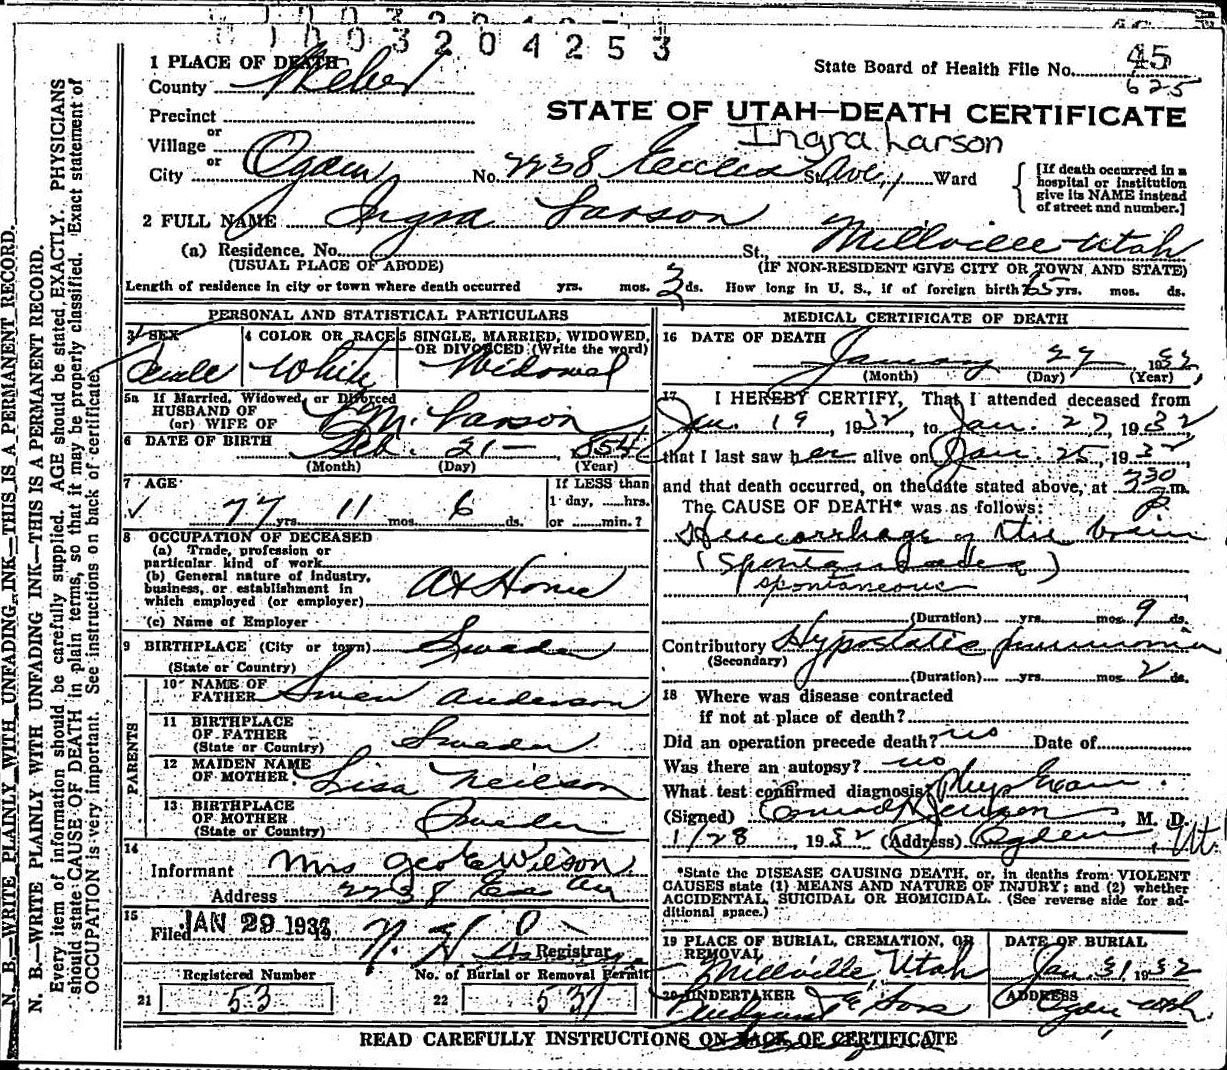 003204253
45
State Board of Health File No. 625
STATE OF UTAH—DEATH CERTIFICATE
Ingra Larson
1 PLACE OF DEATH
County Weber
Precinct
or
Village
or
City Ogden No. 2238 Eccles St. Ave., Ward
[If death occurred in a
hospital or institution
give its NAME instead
of street and number.]
2 FULL NAME Ingra Larson
(a) Residence, No. St., Millville Utah
(USUAL PLACE OF ABODE) (IF NON-RESIDENT GIVE CITY OR TOWN AND STATE)
Length of residence in city or town where death occurred yrs. mos. 3 ds. How long in U. S., if of foreign birth 65 yrs. mos. ds.
PERSONAL AND STATISTICAL PARTICULARS
3 SEX 4 COLOR OR RACE 5 SINGLE, MARRIED, WIDOWED,
OR DIVORCED (Write the word)
Female White Widowed
5a If Married, Widowed, or Divorced
HUSBAND OF
(or) WIFE OF M. Larson
6 DATE OF BIRTH Feb. 21 1854
(Month) (Day) (Year)
7 AGE If LESS than
1 day, hrs.
77 yrs. 11 mos. 6 ds. or min.?
8 OCCUPATION OF DECEASED
(a) Trade, profession or
particular kind of work
(b) General nature of industry,
business, or establishment in
which employed (or employer) At Home
(c) Name of Employer
9 BIRTHPLACE (City or town) Sweden
(State or Country)
PARENTS
10 NAME OF
FATHER Swen Anderson
11 BIRTHPLACE
OF FATHER
(State or Country) Sweden
12 MAIDEN NAME
OF MOTHER Lisa Neilson
13 BIRTHPLACE
OF MOTHER
(State or Country) Sweden
14
Informant Mrs Geo E Wilson
Address 2238 Ecc Av
15
Filed JAN 29 1932 19
Registrar
Registered Number No. of Burial or Removal Permit
21 53 22 537
MEDICAL CERTIFICATE OF DEATH
16 DATE OF DEATH
January 27 1932
(Month) (Day) (Year)
17 I HEREBY CERTIFY, That I attended deceased from
Jan. 19, 1932, to Jan. 27 1932
that I last saw her alive on Jan. 25, 1932
and that death occurred, on the date stated above, at 3 30 P m.
The CAUSE OF DEATH* was as follows:
Hemorrhage of the brain
spontaneous
(Duration) yrs. mos. 9 ds.
Contributory Hypostatic pneumonia
(Secondary)
(Duration) yrs. mos. 2 ds.
18 Where was disease contracted
if not at place of death?
Did an operation precede death? no Date of
Was there an autopsy? no
What test confirmed diagnosis? Phys Exam
(Signed) Conrad H Jenson, M. D.
1/28, 1932 (Address) Ogden, Ut.
*State the DISEASE CAUSING DEATH, or, in deaths from VIOLENT
CAUSES state (1) MEANS AND NATURE OF INJURY; and (2) whether
ACCIDENTAL, SUICIDAL OR HOMICIDAL. (See reverse side for ad-
ditional space.)
19 PLACE OF BURIAL, CREMATION, OR
REMOVAL
Millville, Utah
DATE OF BURIAL
Jan. 31, 1932
20 UNDERTAKER
Lindquist & Sons
ADDRESS
Ogden Utah.
READ CAREFULLY INSTRUCTIONS ON BACK OF CERTIFICATE
N. B.—WRITE PLAINLY WITH UNFADING INK—THIS IS A PERMANENT RECORD.
N. B.—WRITE PLAINLY WITH UNFADING INK—THIS IS A PERMANENT RECORD.
Every item of information should be carefully supplied. AGE should be stated EXACTLY. PHYSICIANS
should state CAUSE OF DEATH in plain terms, so that it may be properly classified. Exact statement of
OCCUPATION is very important. See instructions on back of certificate.